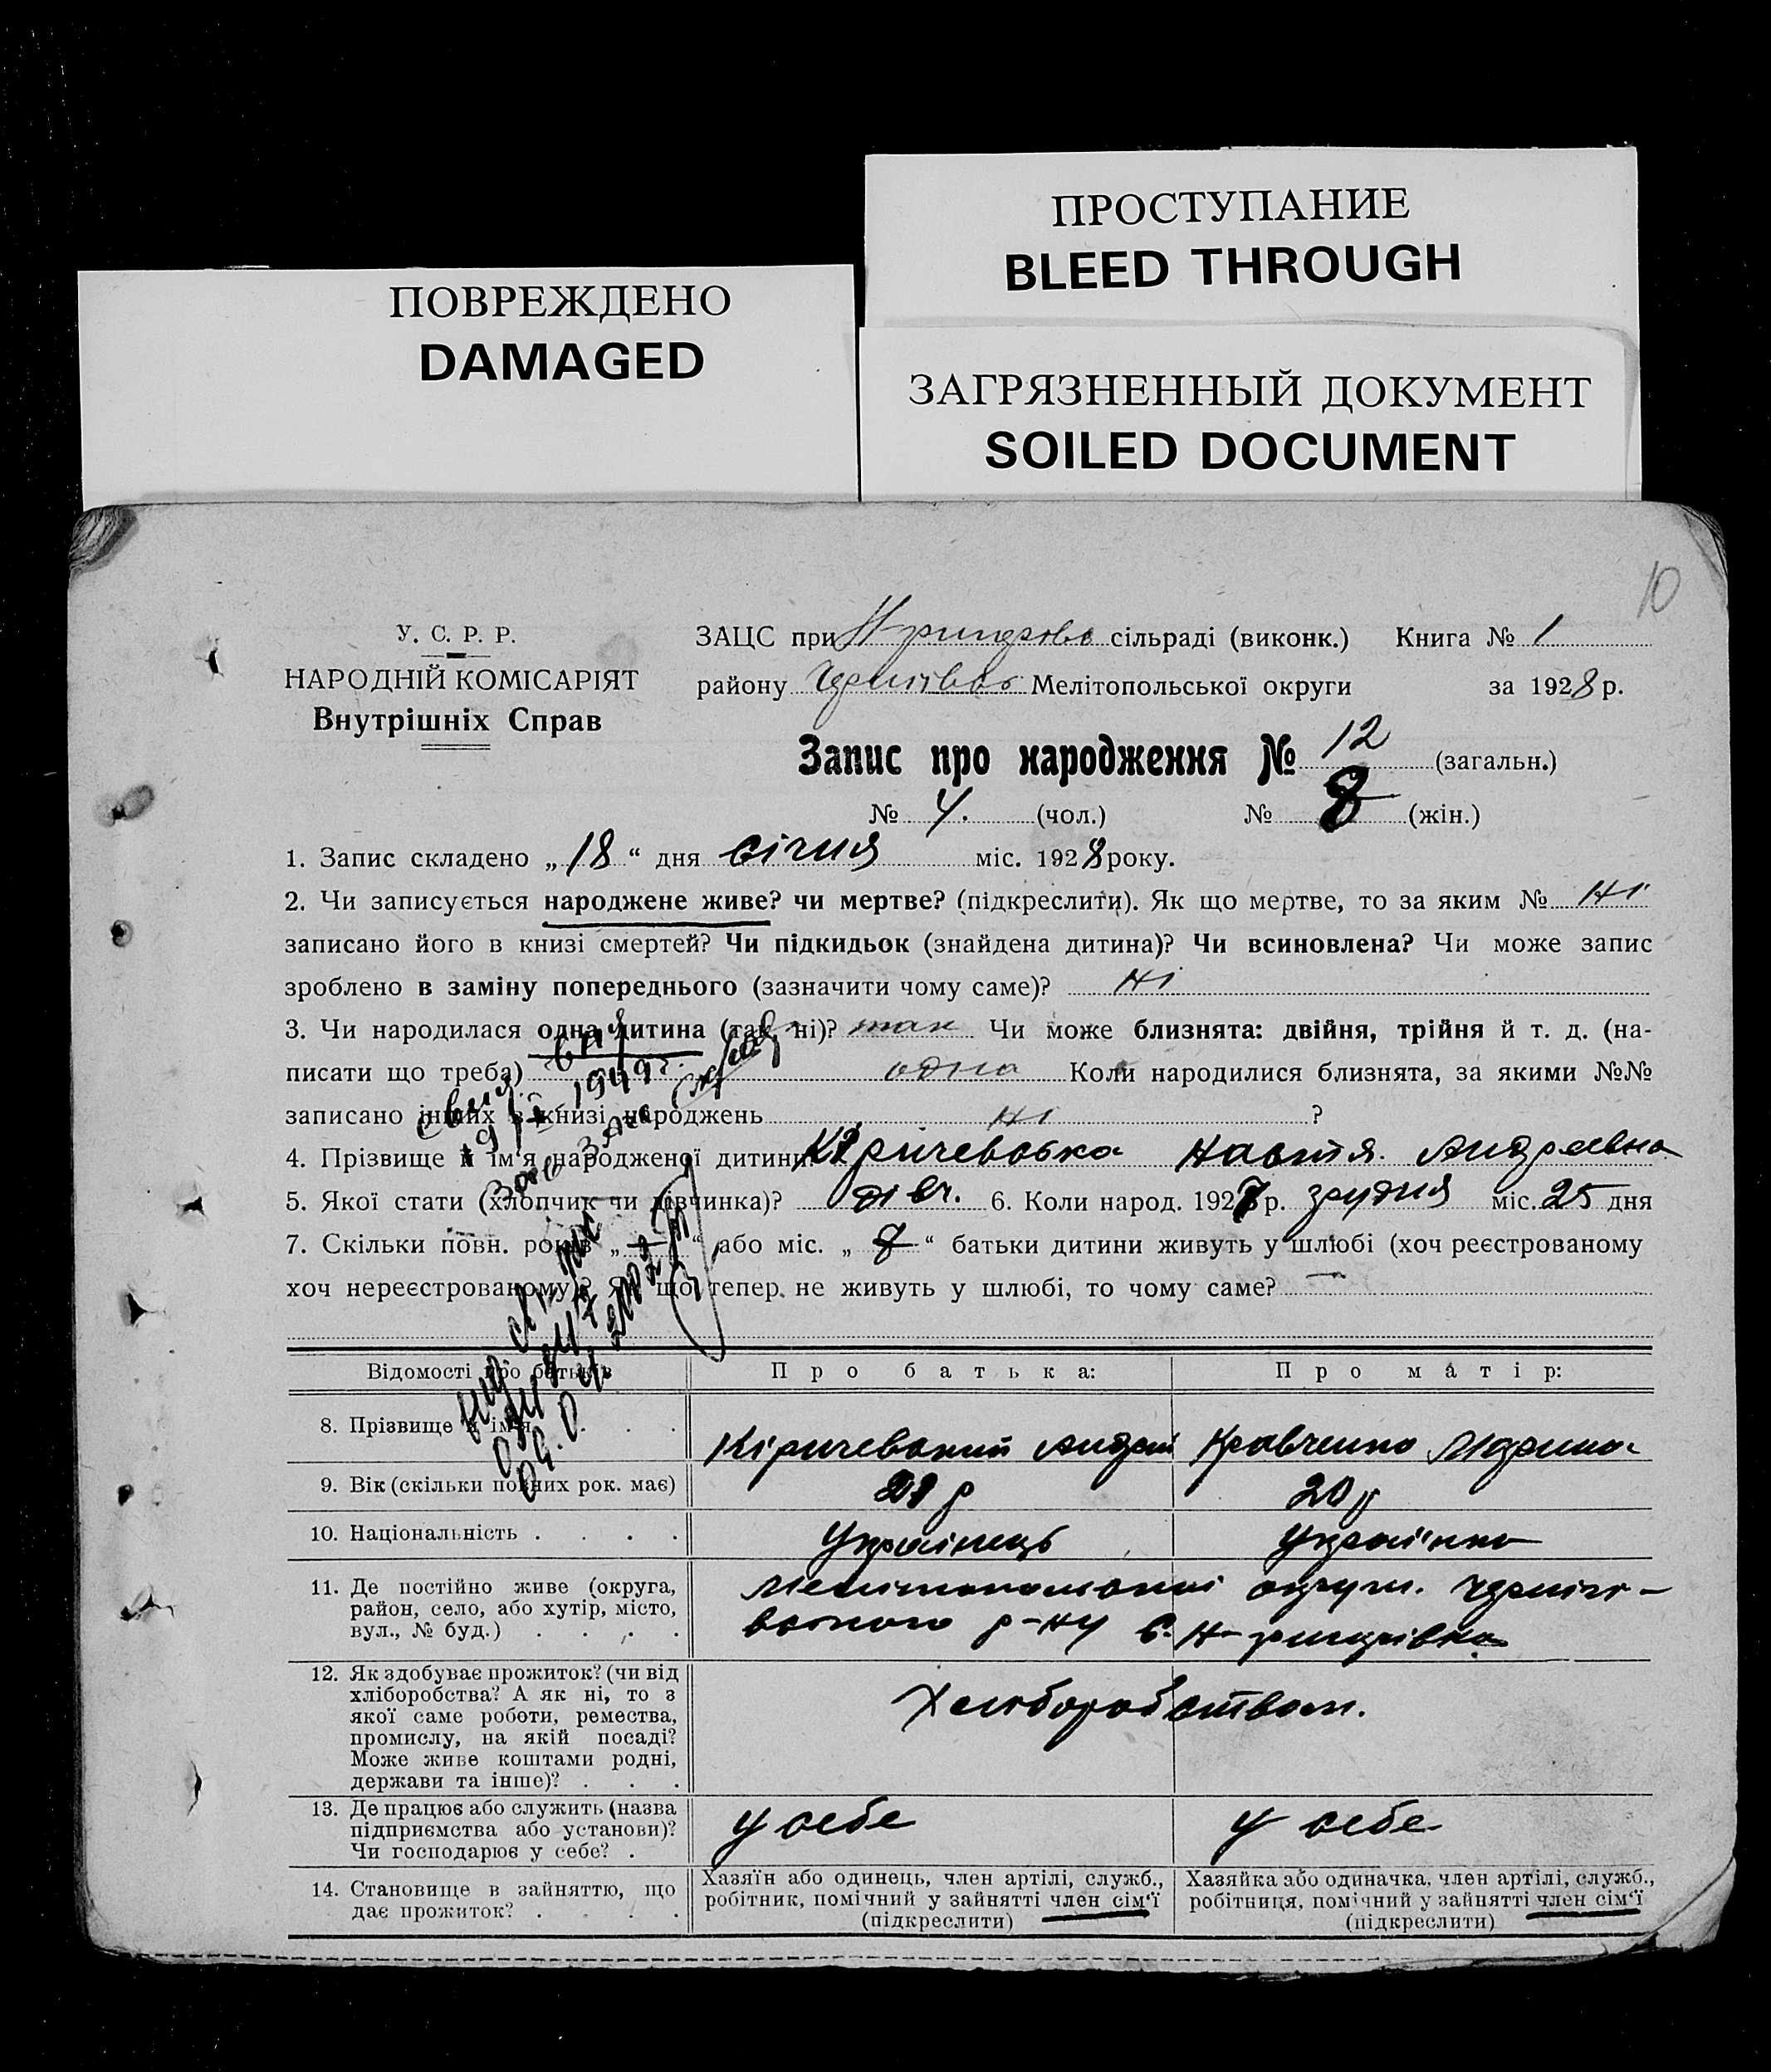 ПРОСТУПАНИЕ
BLEED THROUGH
ПОВРЕЖДЕНО
DAMAGED
ЗАГРЯЗНЕННЫЙ ДОКУМЕНТ
SOILED DOCUMENT
10
У. С. Р. Р.
НАРОДНІЙ КОМІСАРІЯТ
Внутрішніх Справ
ЗАЦС при сільраді (виконк.) Книга № 1
району Мелітопольської округи за 1928 р.
Запис про народження № 12 (загальн.)
№ 4. (чол.) № 8 (жін.)
1. Запис складено „18“ дня січня міс. 1928 року.
2. Чи записується народжене живе? чи мертве? (підкреслити). Як що мертве, то за яким № ні
записано його в книзі смертей? Чи підкидьок (знайдена дитина)? Чи всиновлена? Чи може запис
зроблено в заміну попереднього (зазначити чому саме)? ні
3. Чи народилася одна дитина (так, ні)? так Чи може близнята: двійня, трійня й т. д. (на-
писати що треба) одна Коли народилися близнята, за якими №№
записано інших в книзі народжень ні ?
4. Прізвище й ім'я народженої дитини Кірічевська Настя Андреевна
5. Якої стати (хлопчик чи дівчинка)? дівч. 6. Коли народ. 1927 р. грудня міс. 25 дня
7. Скільки повн. років „ “ або міс. „ “ батьки дитини живуть у шлюбі (хоч реєстрованому
хоч нереєстрованому)? Як що тепер не живуть у шлюбі, то чому саме? —
Відомості про батьків Про батька: Про матір:
8. Прізвище й ім'я . . . Кірічевский Андрей Кравченко Марина
9. Вік (скільки повних рок. має) 21 р 20 р
10. Національність . . . . Українець Українка
11. Де постійно живе (округа,
район, село, або хутір, місто,
вул., № буд.) . . . .
Мелітопольської округи. Черніг-
вського р-ну с.
12. Як здобуває прожиток? (чи від
хліборобства? А як ні, то з
якої саме роботи, ремества,
промислу, на якій посаді?
Може живе коштами родні,
держави та інше)? . . .
Хліборобством.
13. Де працює або служить (назва
підприємства або установи)?
Чи господарює у себе? .
У себе У себе
14. Становище в зайняттю, що
дає прожиток? . . . .
Хазяїн або одинець, член артілі, служб.,
робітник, помічний у зайнятті член сім'ї
(підкреслити)
Хазяйка або одиначка, член артілі, служб.,
робітниця, помічний у зайнятті член сім'ї
(підкреслити)